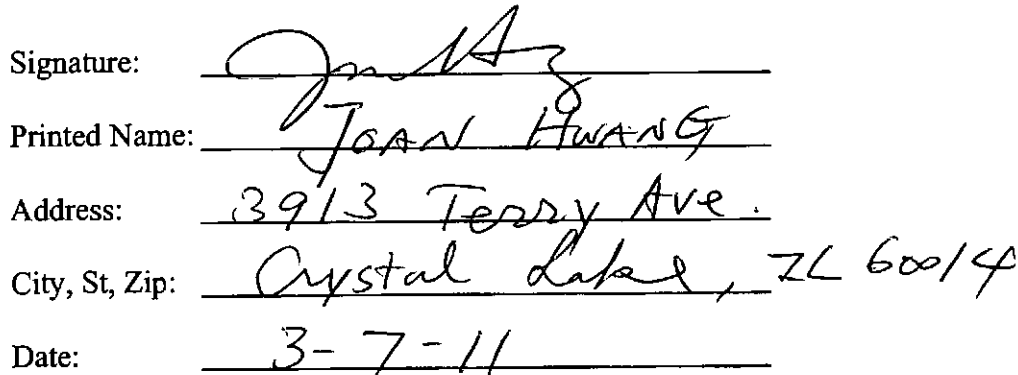 Signature:
Printed Name: JOAN HWANG
Address: 3913 Terry Ave.
City, St, Zip: Crystal Lake, IL 60014
Date: 3-7-11